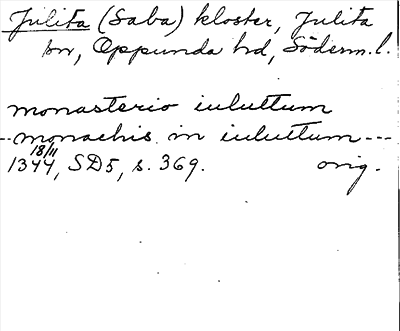 Julita (Saba) kloster, Julita
sn, Oppunda hd, Söderm. l.
monasterio iuluttum
--monachis in iuluttum---
18/11
1344, SD5, s. 369. orig.